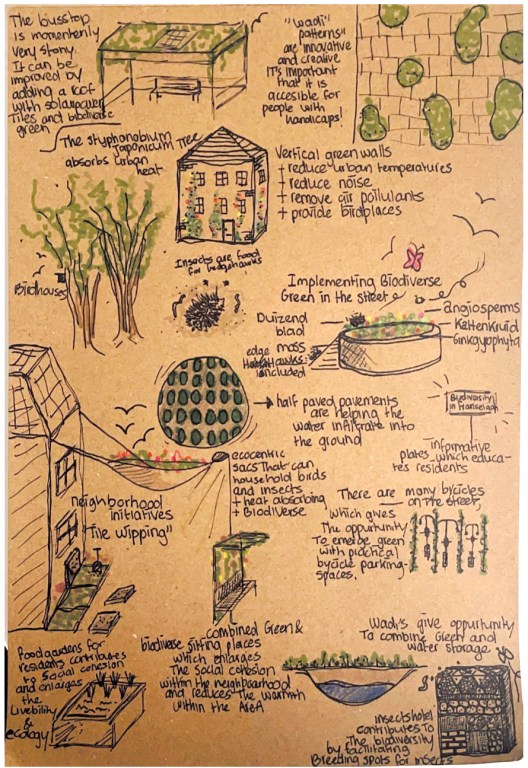 The busstop
is momentenly
very stony.
It can be
improved by
adding a roof
with solarpower
Tiles and biodiverse
green
"wadi"
patterns"
are innovative
and creative
IT's important
that it is
accesible for
people with
handicaps!
The styphonobium
japonicum Tree
absorbs urban
heat
Vertical green walls
+ reduce urban temperatures
+ reduce noise
+ remove air pollutants
+ provide birdplaces
Birdhouses
Insects are food
for hedgehawks
Implementing Biodiverse
Green in the street
Duizend
blad
edge moss
included
angiosperms
KettenKruid
Ginkgophyta
half paved pavements
are helping the
water infiltrate into
the ground
Biydiversity
in Hanselaph
informative
plates which educa-
tes residents
ecocentric
sacs that can
household birds
and insects
+ heat absorbing
+ Biodiverse
neighborhood
initiatives
"Tile wipping"
There are many bycicles
on the street,
which gives
The opportunity
To emerge green
with practical
bycicle parking-
spaces.
food gardens for
residents contributes
to social cohesion
and enlarges
the
Livebility
&
ecology
Combined Green &
biodiverse sitting places
which enlarges
The social cohesion
within the neighbaarhood
and reduces The warmth
within the AreA
Wadi's give opportunity
To combine Green and
water storage
insectshotel
contributes To
The biodiversity
by facilitating
Breeding spots for insects